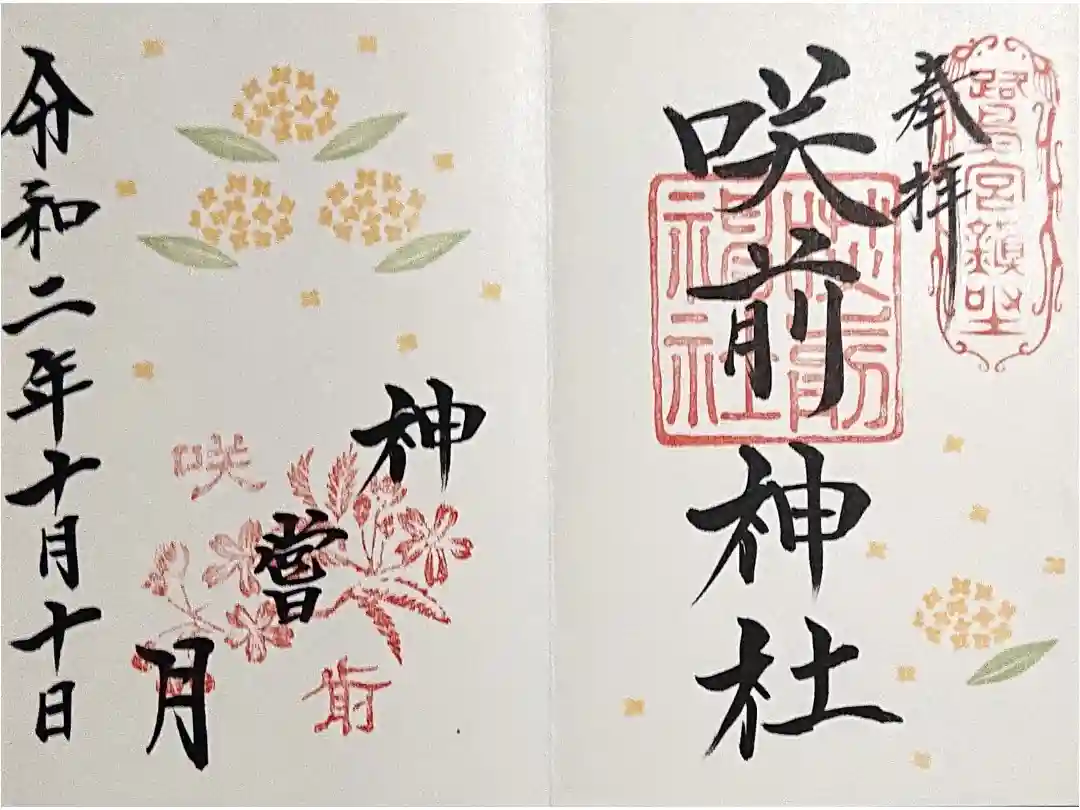 鷺宮鎮坐
奉拝
咲前神社
咲前神社
神嘗月
咲前
令和二年十月十日